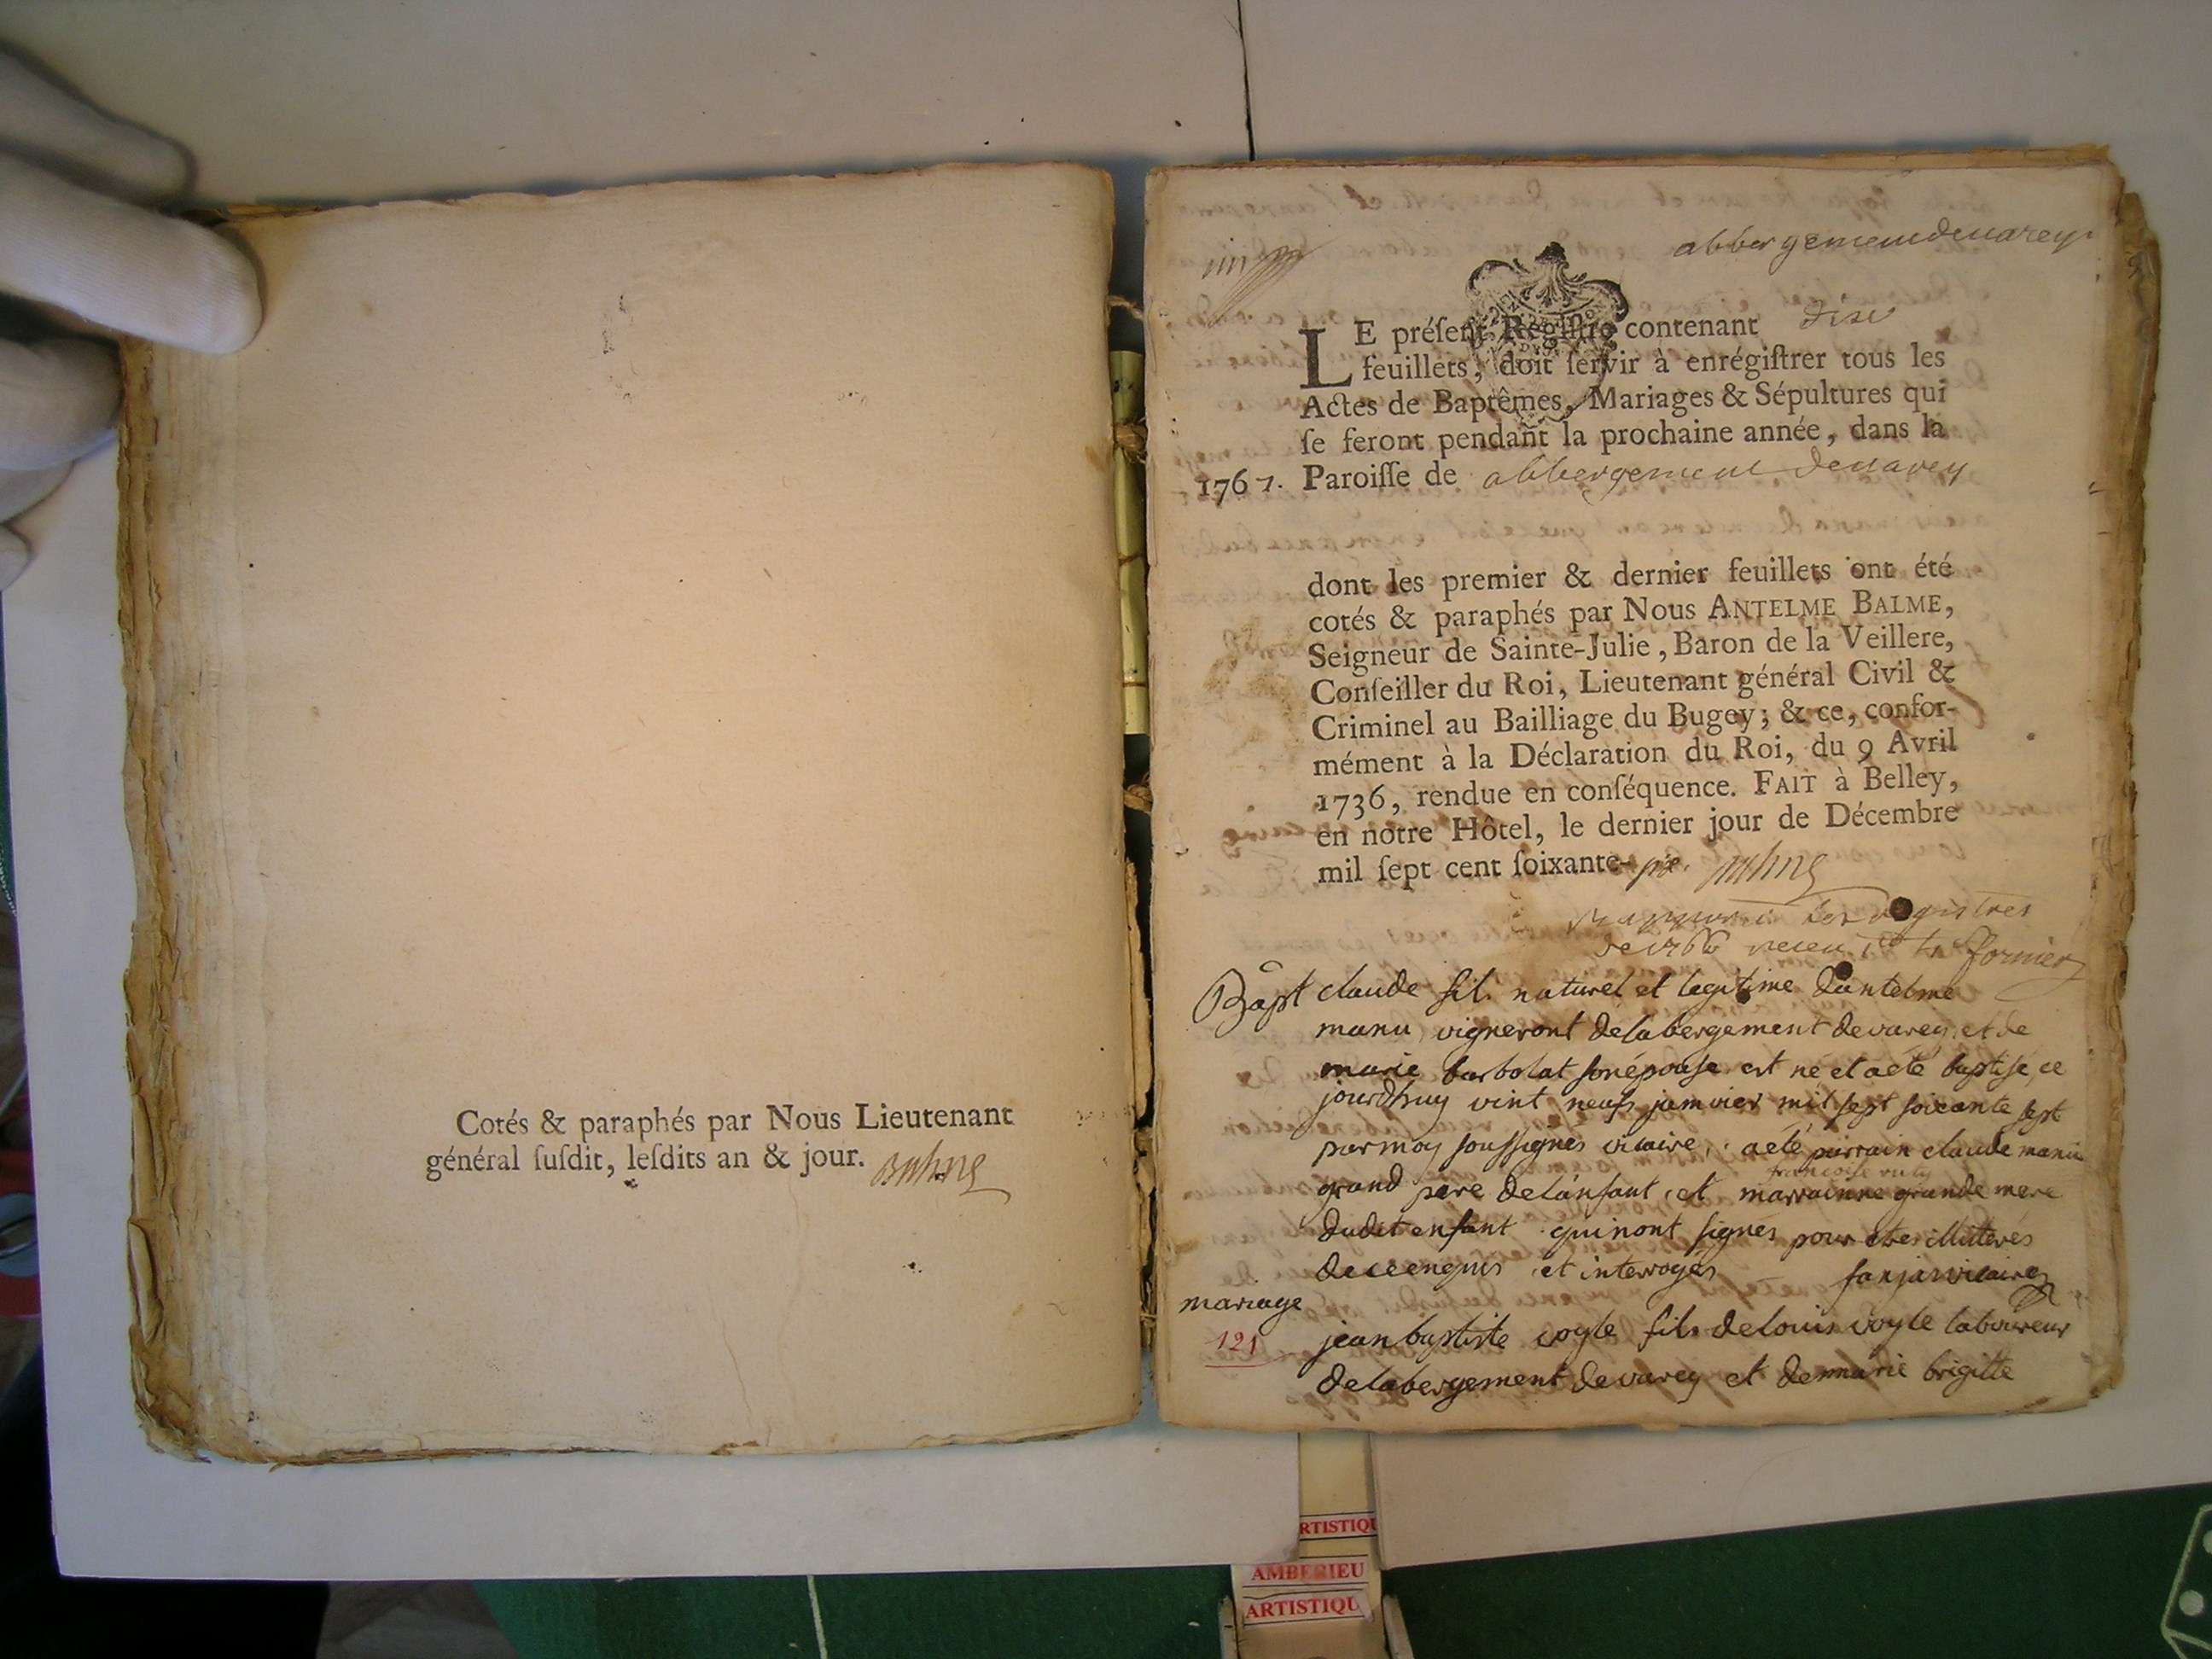 Cotés & paraphés par Nous Lieutenant
général ſuſdit, leſdits an & jour.
abbergement devarey
LE préſent Regiſtre contenant dixe
feuillets, doit ſervir à enrégiſtrer tous les
Actes de Baptêmes, Mariages & Sépultures qui
ſe feront pendant la prochaine année, dans la
1767. Paroiſſe de abbergement devarey
dont les premier & dernier feuillets ont été
cotés & paraphés par Nous ANTELME BALME,
Seigneur de Sainte-Julie, Baron de la Veillere,
Conſeiller du Roi, Lieutenant général Civil &
Criminel au Bailliage du Bugey; & ce, confor-
mément à la Déclaration du Roi, du 9 Avril
1736, rendue en conſéquence. FAIT à Belley,
en notre Hôtel, le dernier jour de Décembre
mil ſept cent ſoixante-six.
les registres
de 1766
Bapt claude fils naturel et legitime dantelme
manu vigneront delabergement devarey et de
marie barbolat son épouse est né et aeté baptisé ce
jourdhuy vint neufs janvier mil sept soixante sept
par moy soussignés vicaire, aeté parrain claude manu
francoise ruty
grand pere delanfant et marrainne grande mere
dudit enfant qui nont signés pour etre illitterés
de ce enquis et interrogés fanjas vicaire
mariage
121 jean baptiste voyle fils delouis voyle laboureur
delabergement devarey et demarie brigitte
RTISTIQU
AMBERIEU
ARTISTIQU